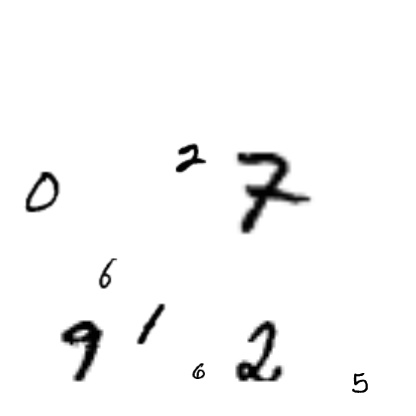 0 2 7
6
9 1 6 2 5